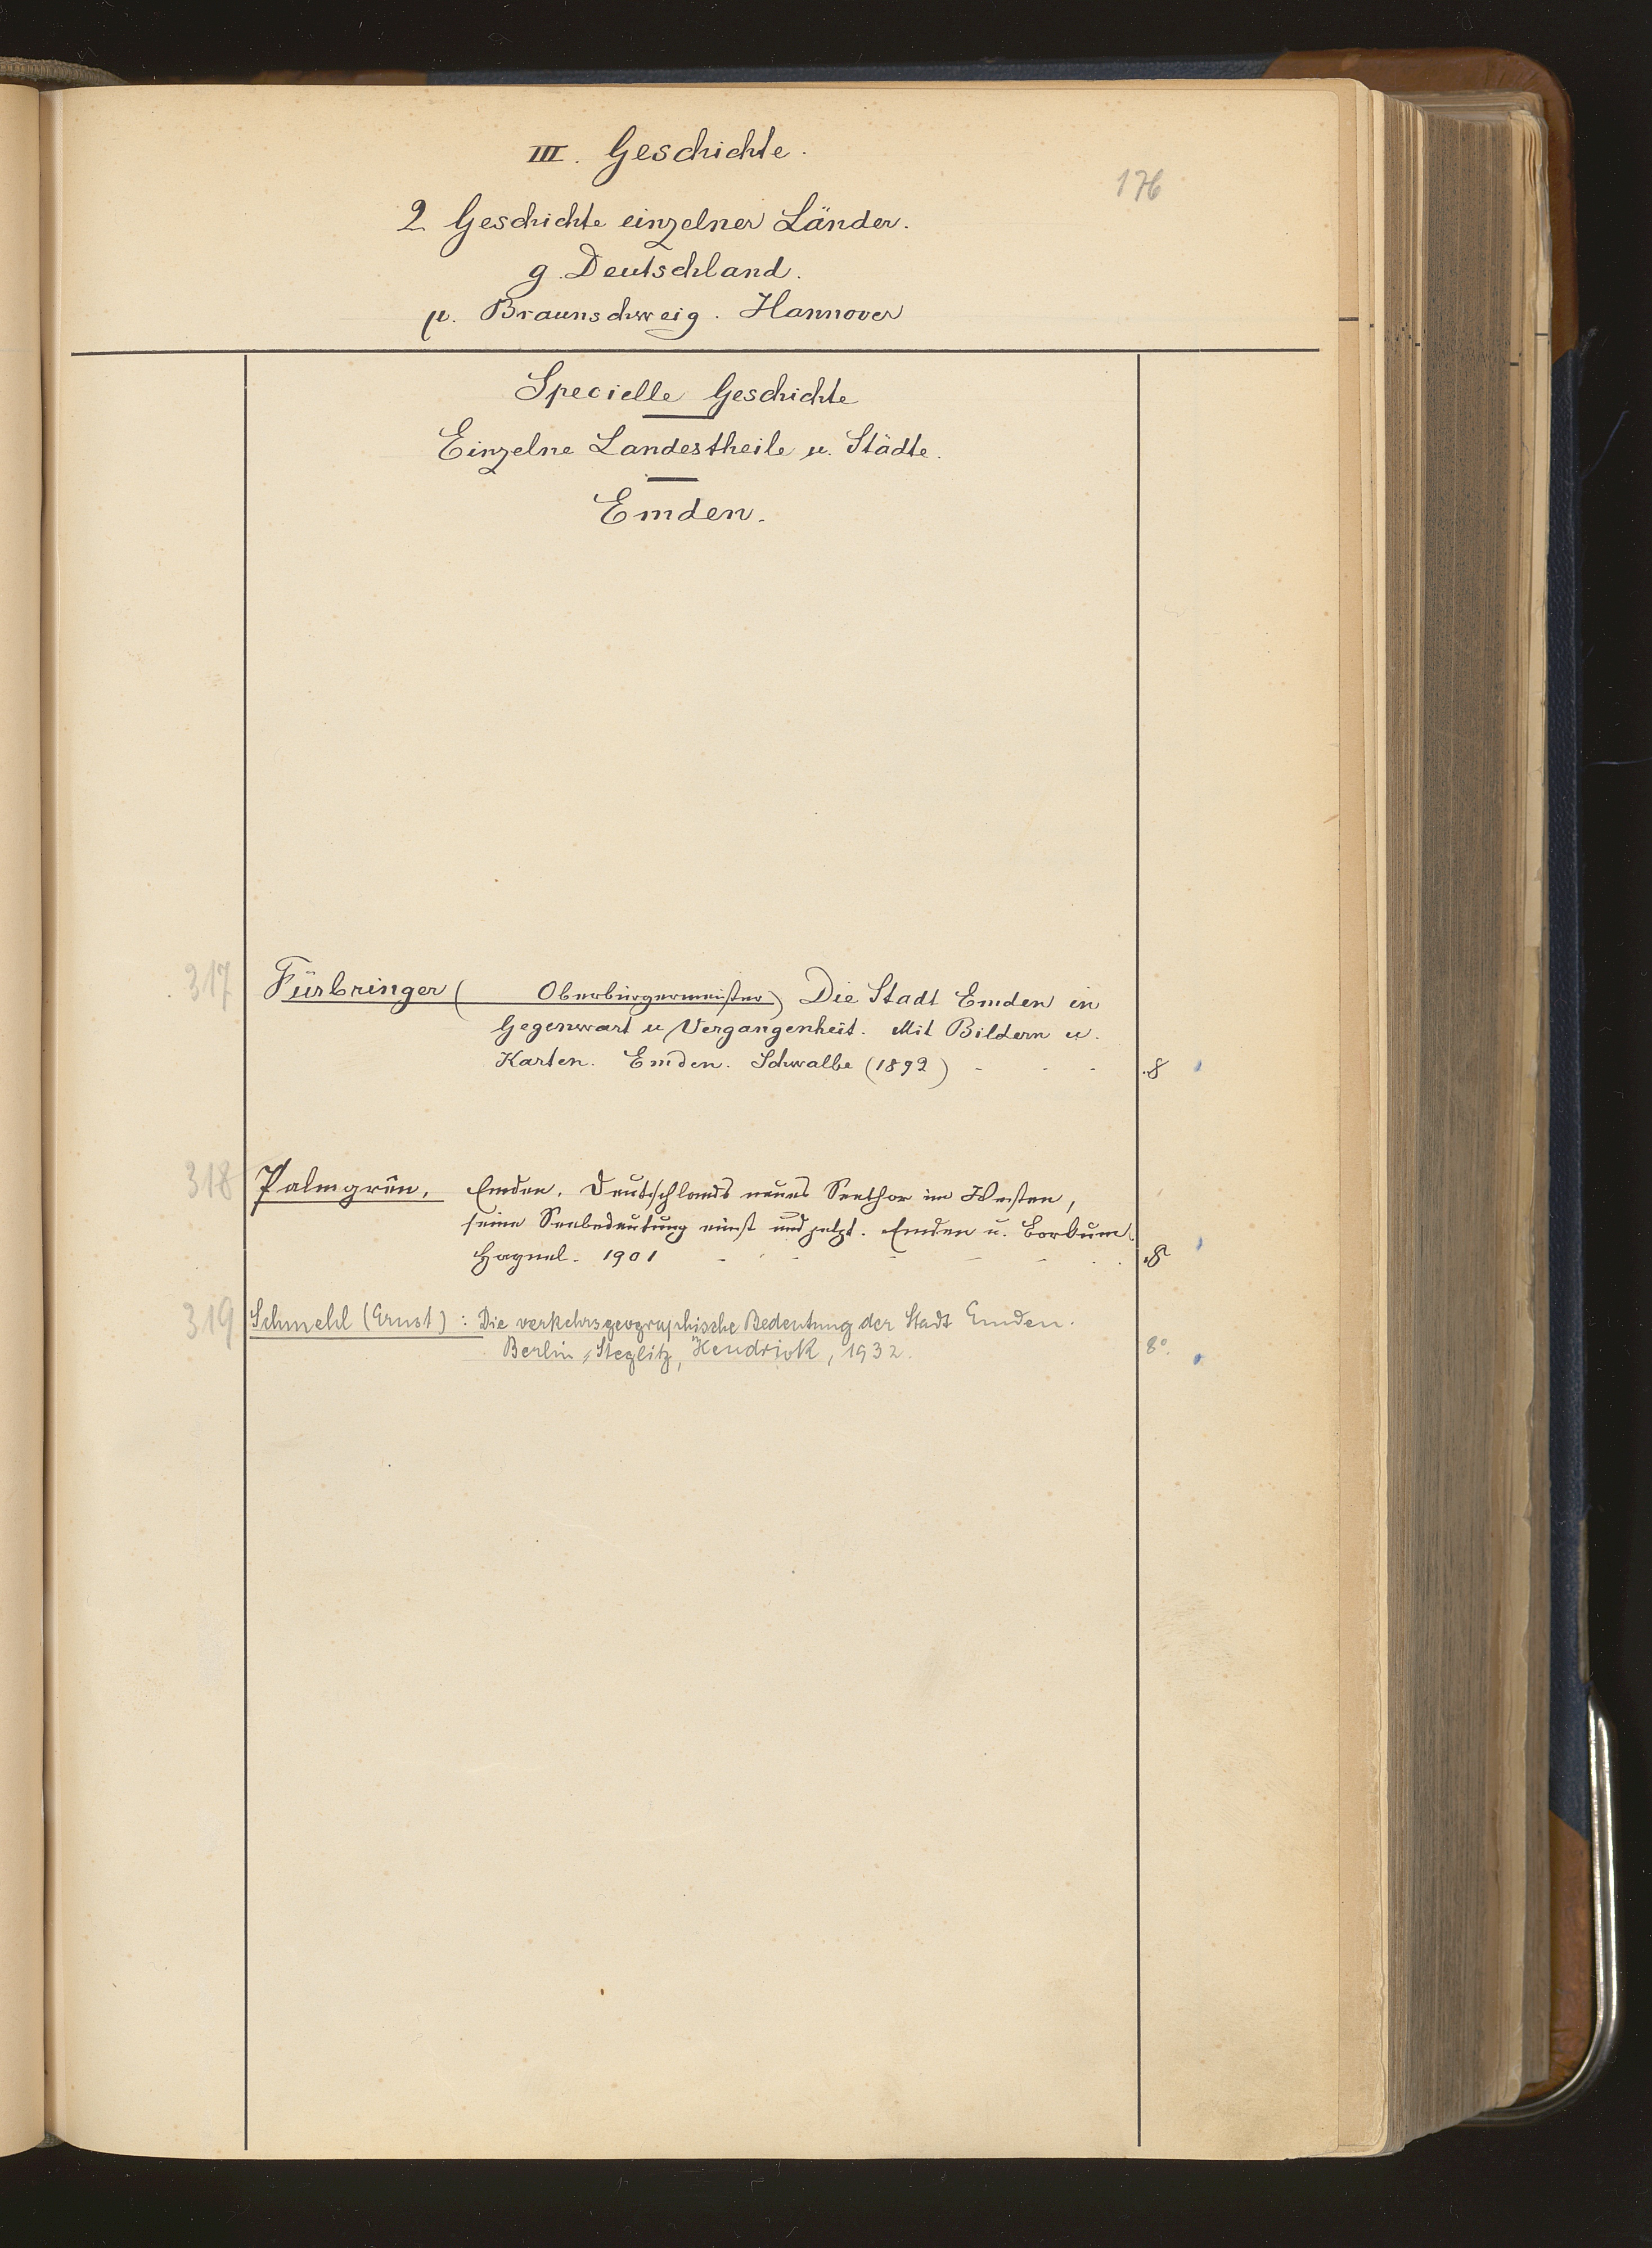 III. Geschichte.
176
2 Geschichte einzelner Länder.
g. Deutschland.
μ. Braunschweig. Hannover
Specielle Geschichte
Einzelne Landestheile u. Städte.
Emden.
317 Fürbringer ( Oberbürgermeister) Die Stadt Emden in
Gegenwart u Vergangenheit. Mit Bildern u.
Karten. Emden. Schwalbe (1892) - - - 8
318 Palmgrên, Emden, Deutschlands neues Seethor im Westen,
seine Seebedeutung einst und jetzt. Emden u. Borkum.
Haynel. 1901 - - - - - - 8
319 Schmehl (Ernst): Die verkehrsgeographische Bedeutung der Stadt Emden.
Berlin-Steglitz, Hendriok, 1932. 8°.